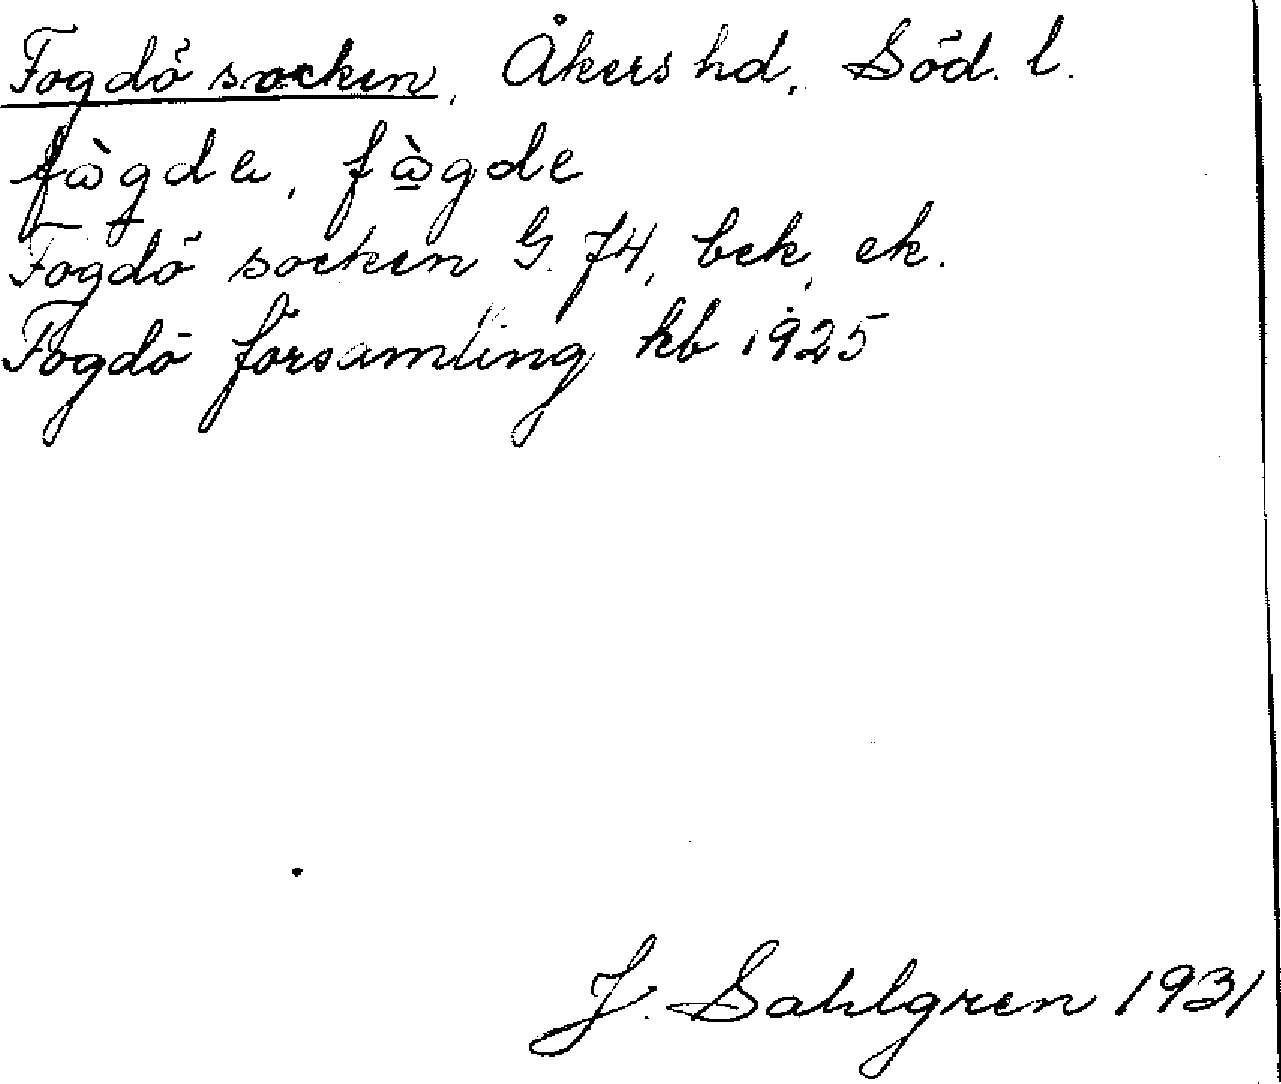 Fogdö socken, Åkers hd, Söd. l.
fὼgda, fὼ̱gde
Fogdö socken G. 74, bek, ek.
Fogdö församling kb 1925
J. Sahlgren 1931